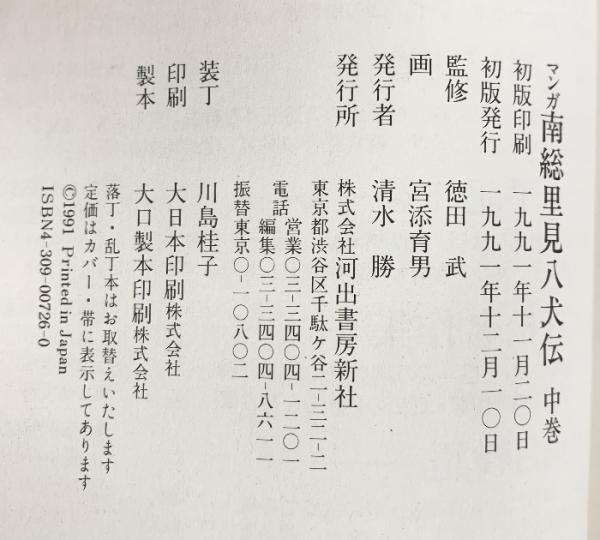 マンガ 南総里見八犬伝 中巻
初版印刷 一九九一年十一月二〇日
初版発行 一九九一年十二月一〇日
監修 徳田 武
画 宮添育男
発行者 清水 勝
発行所 株式会社 河出書房新社
東京都渋谷区千駄ケ谷二-三二-二
電話 営業〇三-三四〇四-一二〇一
編集〇三-三四〇四-八六一一
振替東京〇-一〇八〇二
装丁 川島桂子
印刷 大日本印刷株式会社
製本 大口製本印刷株式会社
落丁・乱丁本はお取替えいたします
定価はカバー・帯に表示してあります
©1991 Printed in Japan
ISBN4-309-00726-0